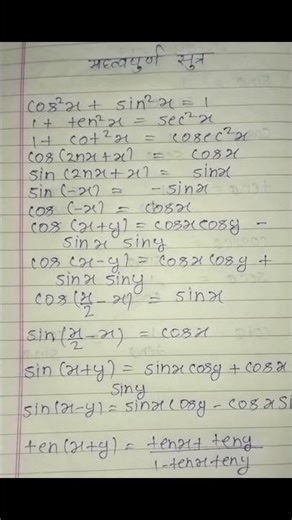 महत्वपुर्ण सुत्र
cos²x + sin²x = 1
1 + ten²x = sec²x
1 + cot²x = cosec²x
cos (2nx+x) = cosx
sin (2nx+x) = sinx
sin (-x) = -sinx
cos (-x) = cosx
cos (x+y) = cosx cosy -
sinx siny
cos (x-y) = cosx cosy +
sinx siny
cos (x/2 - x) = sinx
sin (x/2 - x) = cosx
sin (x+y) = sinx cosy + cosx
siny
sin (x-y) = sinx cosy - cosx Si
ten (x+y) = tenx + teny
1 - tenx teny